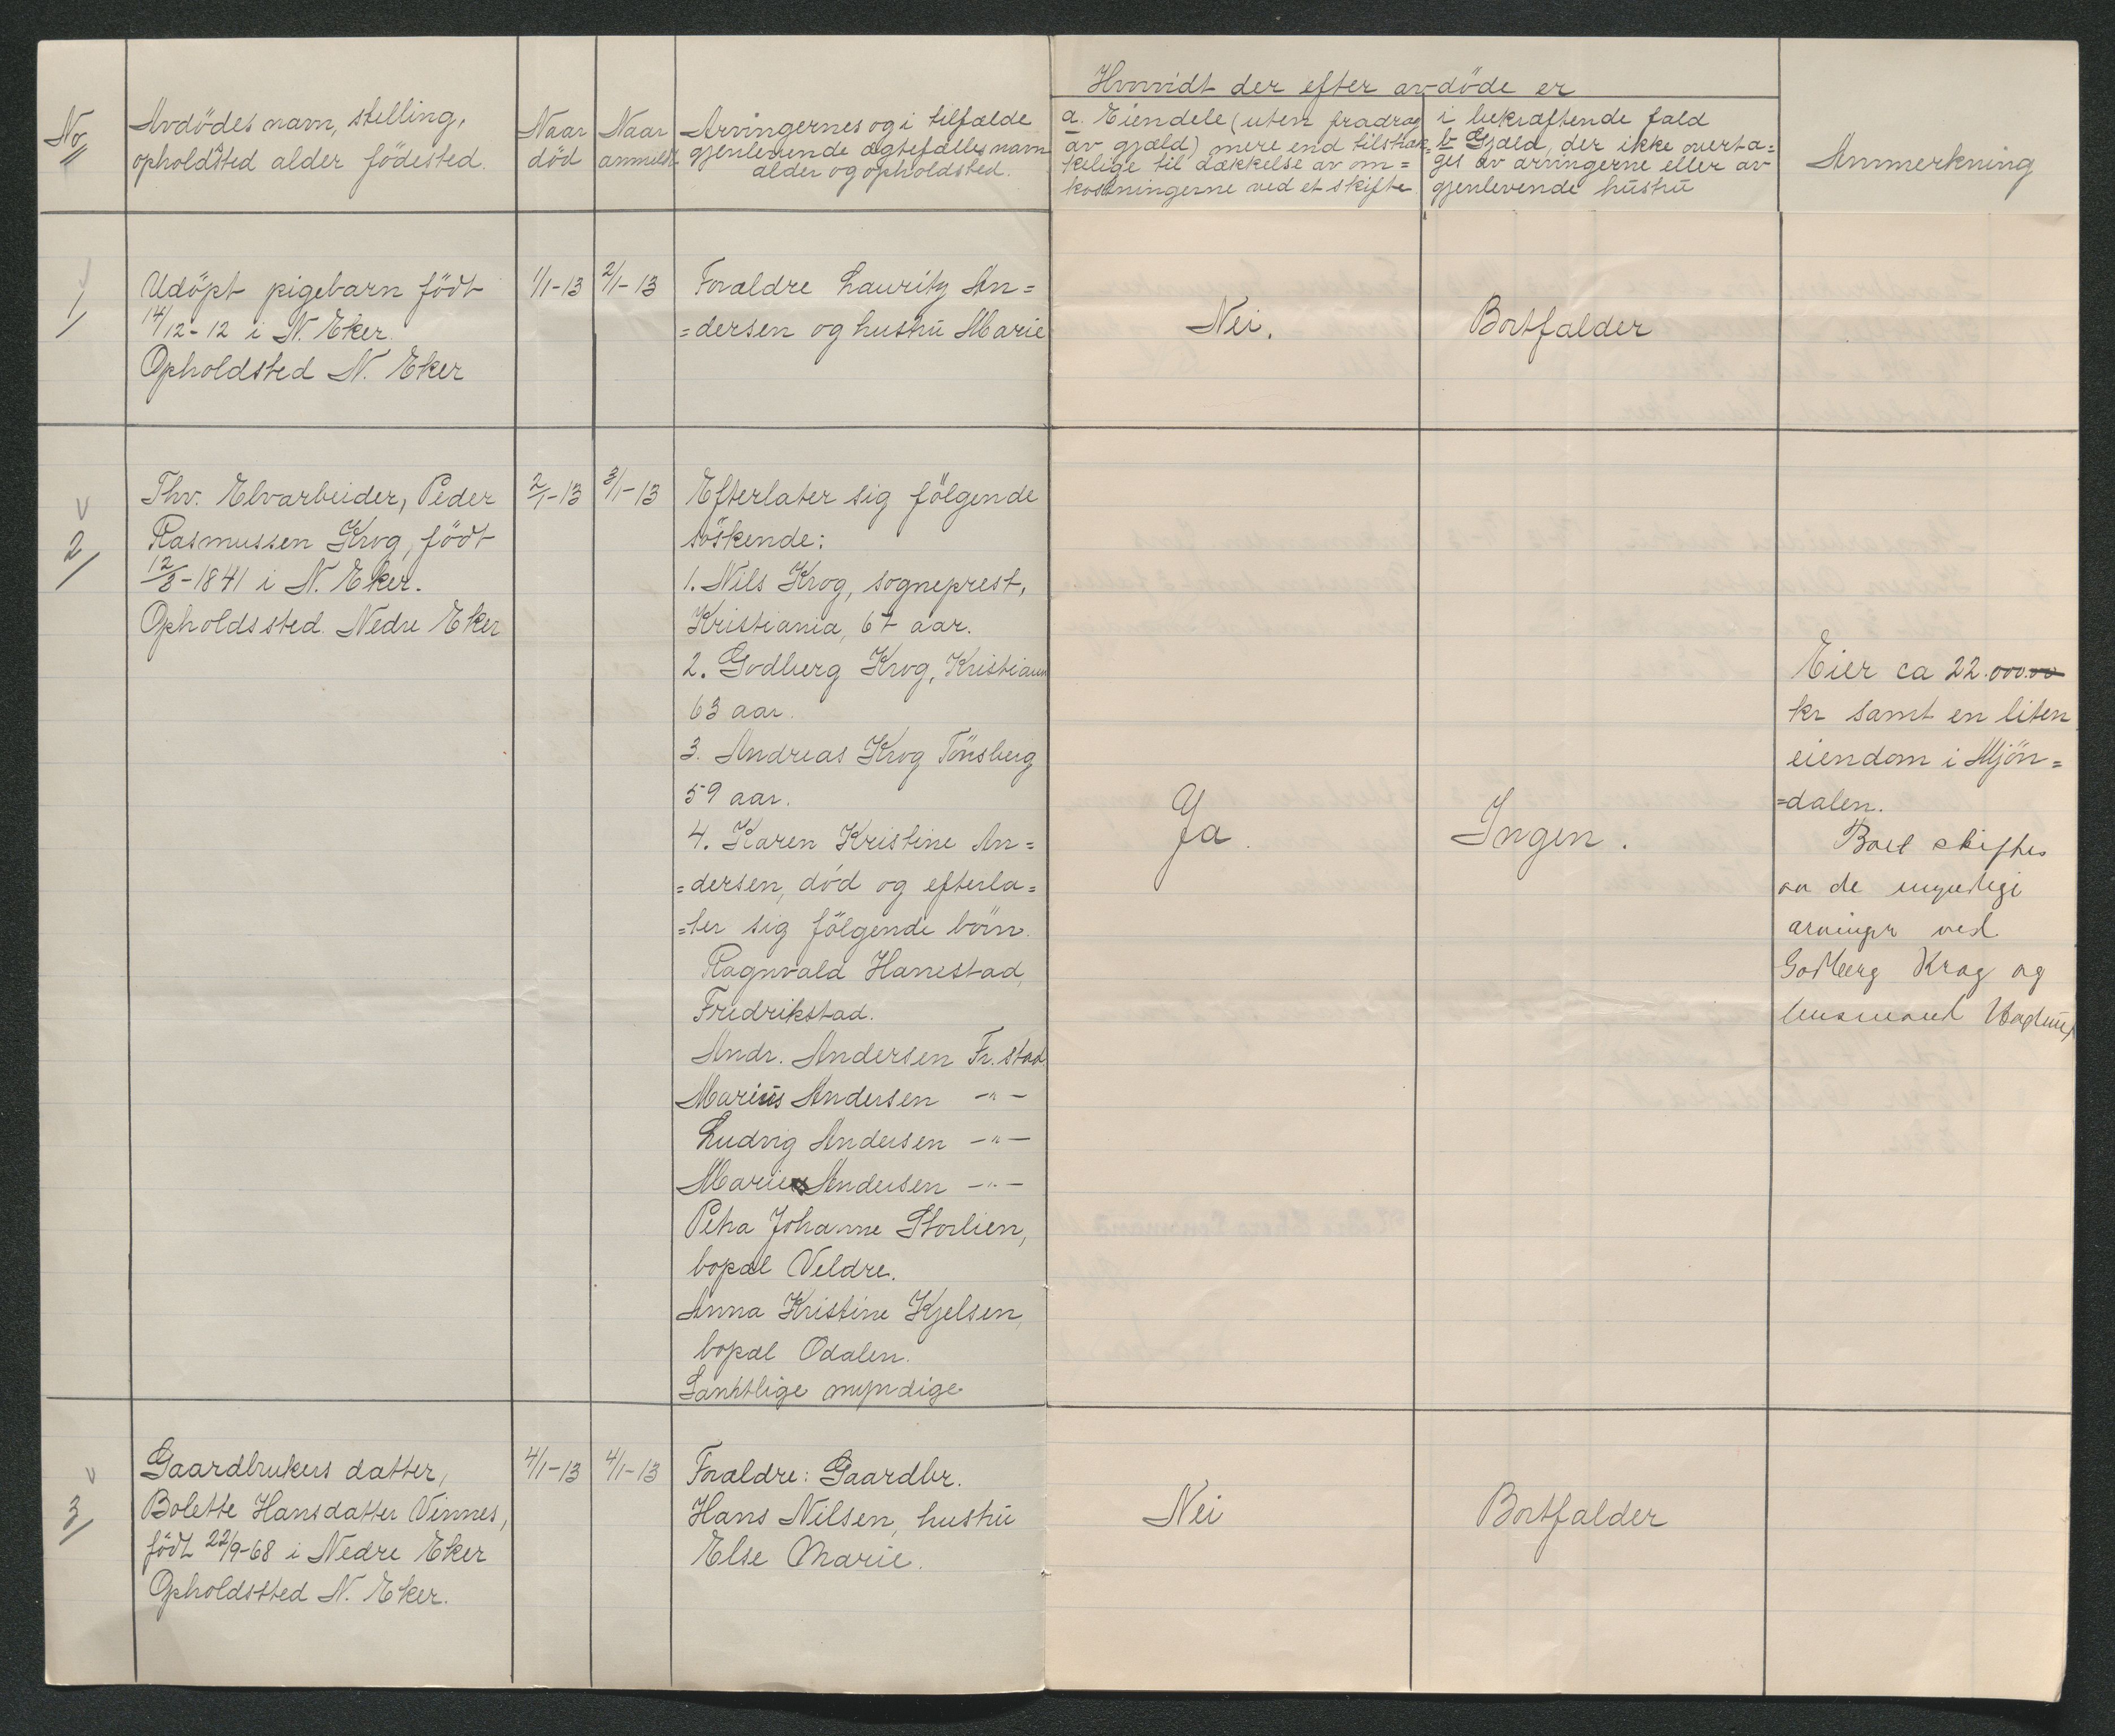 No
Avdödes navn, stilling,
opholdsted alder födested.
Naar
död
Naar
anmeldt
Arvingernes og i tilfælde
gjenlevende ægtefælles navn
alder og opholdsted.
Hvorvidt der efter avdöde er
a. Eiendele (uten fradrag
av gjæld) mere end tilstræk=
kelige til dækkelse av om=
kostningerne ved et skifte
i bekræftende fald
b Gjæld, der ikke overta=
ges av arvingerne eller av
gjenlevende hustru
Anmerkning
1/
Udöpt pigebarn födt
14/12-12 i N. Eker.
Opholdsted N. Eker
1/1-13
2/1-13
Forældre Lauritz An=
=dersen og hustru Marie
Nei.
Bortfalder
2/
Fhv. Elvarbeider, Peder
Rasmussen Krog, födt
12/3-1841 i N. Eker.
Opholdssted Nedre Eker
2/1-13
3/1-13
Efterlater sig fölgende
söskende:
1. Nils Krog, sogneprest,
Kristiania, 67 aar.
2. Godberg Krog, Kristiania
63 aar.
3. Andreas Krog Tönsberg
59 aar.
4. Karen Kristine An=
=dersen, död og efterla=
=ter sig fölgende börn.
Ragnvald Hanestad,
Fredrikstad.
Andr. Andersen Fr. stad
Marius Andersen -"-
Ludvig Andersen -"-
Marie Andersen -"-
Petra Johanne Storlien,
bopæl Veldre.
Anna Kristine Kjelsen,
bopæl Odalen.
Samtlige myndige
Ja.
Ingen.
Eier ca 22.000.00
kr samt en liten
eiendom i Mjön=
=dalen.
Boet skiftes
av de myndige
arvinger ved
Godberg Krog og
lensmand
3/
Gaardbrukers datter,
Bolette Hansdatter Vinnes,
födt 22/9-68 i Nedre Eker
Opholdssted N. Eker.
4/1-13
4/1-13
Forældre: Gaardbr.
Hans Nilsen, hustru
Else Marie.
Nei
Bortfalder